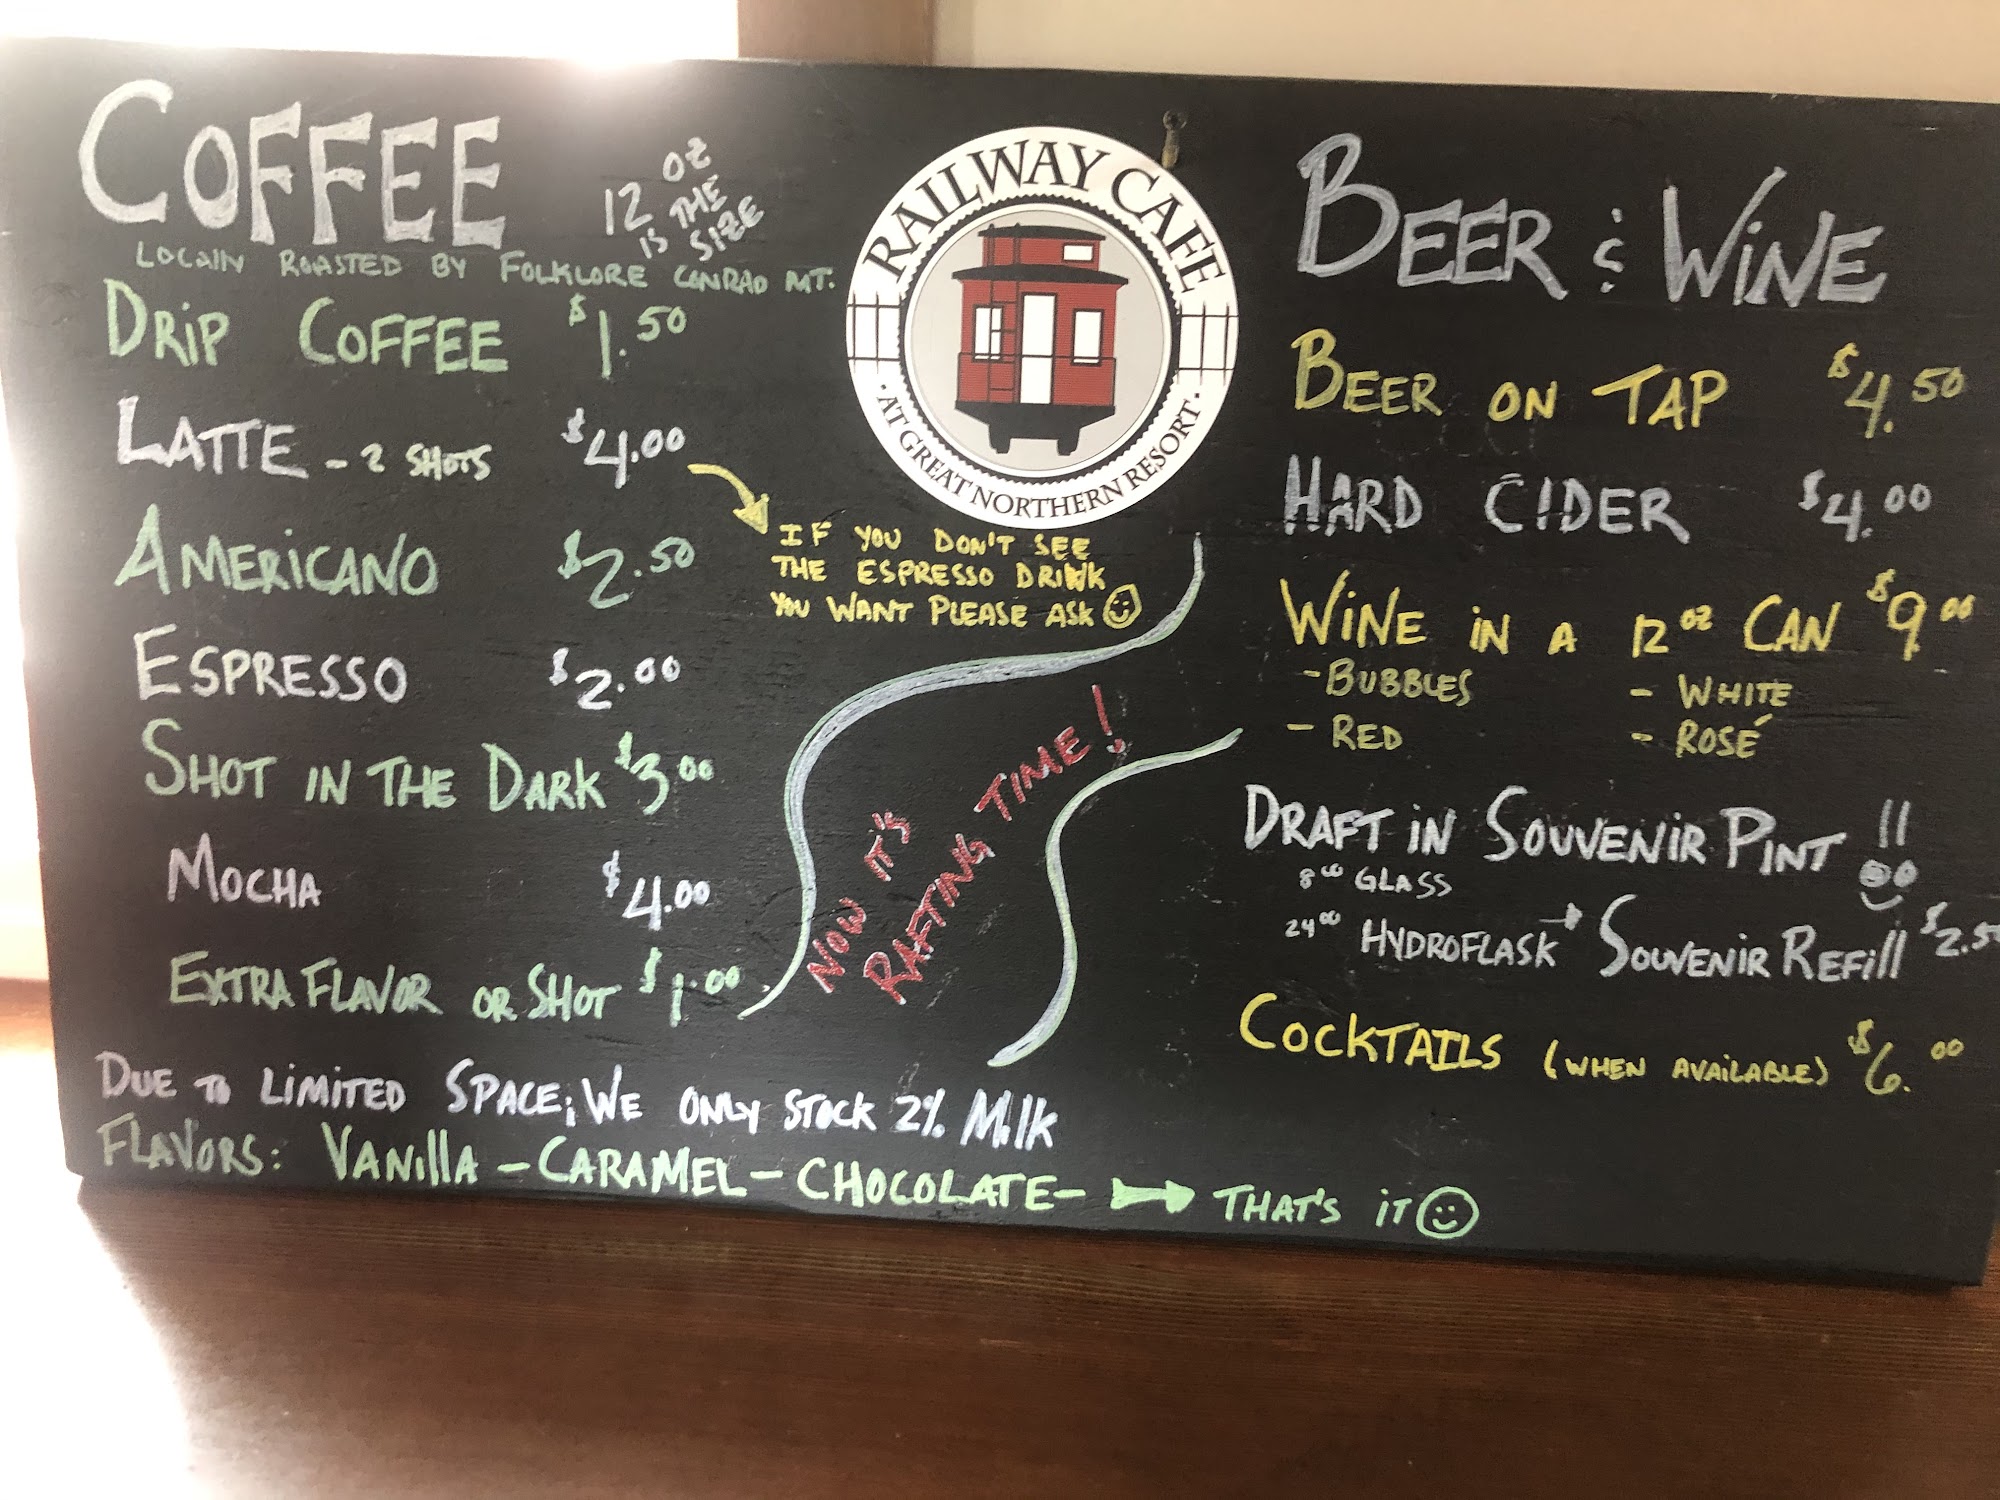 COFFEE
12 OZ
IS THE
SIZE
LOCALLY ROASTED BY FOLKLORE CONRAD MT.
DRIP COFFEE $1.50
LATTE - 2 SHOTS $4.00
IF YOU DON'T SEE
THE ESPRESSO DRINK
YOU WANT PLEASE ASK
AMERICANO $2.50
ESPRESSO $2.00
SHOT IN THE DARK $3.00
MOCHA $4.00
EXTRA FLAVOR OR SHOT $1.00
DUE TO LIMITED SPACE; WE ONLY STOCK 2% MILK
FLAVORS: VANILLA - CARAMEL - CHOCOLATE - THAT'S IT
RAILWAY CAFE
· AT GREAT NORTHERN RESORT ·
NOW IT'S
RAFTING TIME!
BEER & WINE
BEER ON TAP $4.50
HARD CIDER $4.00
WINE IN A 12 OZ CAN $9.00
- BUBBLES - WHITE
- RED - ROSÉ
DRAFT IN SOUVENIR PINT !!
8.00 GLASS
24.00 HYDROFLASK → SOUVENIR REFILL $2.50
COCKTAILS (WHEN AVAILABLE) $6.00